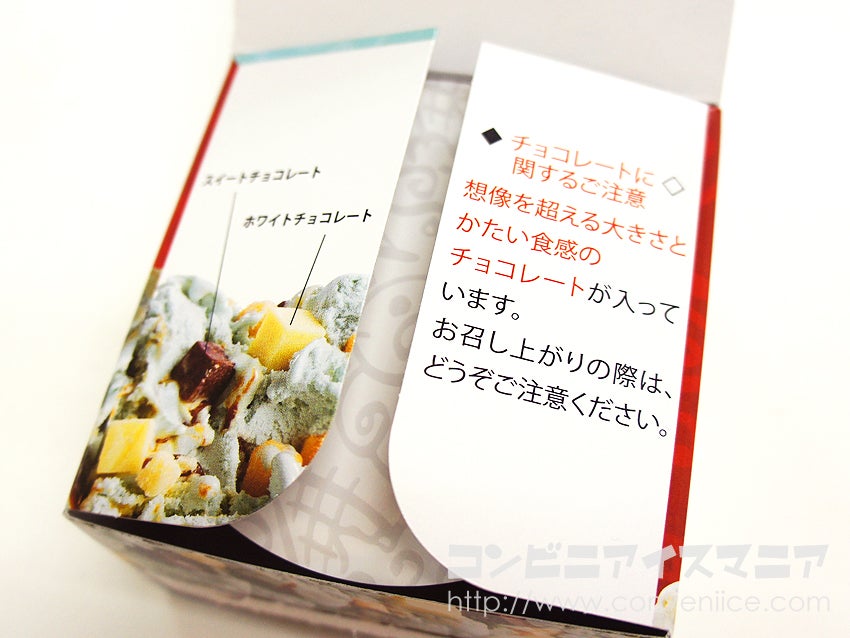 スイートチョコレート
ホワイトチョコレート
◆ チョコレートに
関するご注意 ◇
想像を超える大きさと
かたい食感の
チョコレートが入って
います。
お召し上がりの際は、
どうぞご注意ください。
コンビニアイスマニア
http://www.conveniice.com/